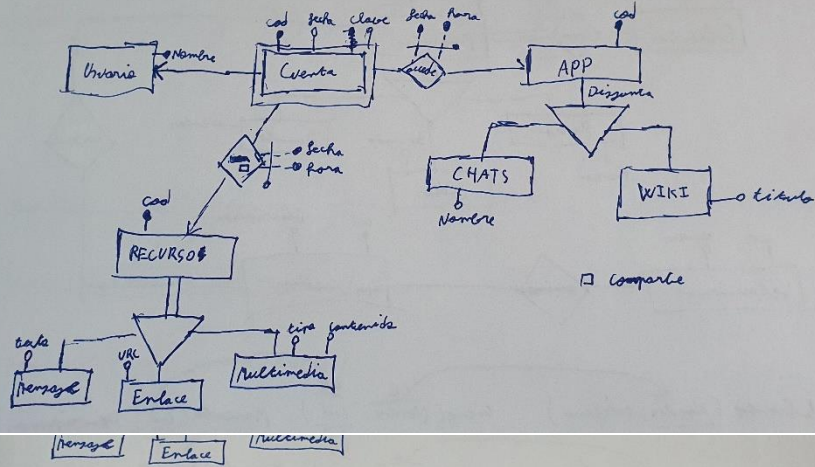 cod fecha clave fecha hora cod
Usuario Nombre Cuenta accede APP
Disjunta
CHATS
Nombre
WIKI titulo
fecha
hora
cod
RECURSOS
comparte
texto URL tipo contenido
Mensaje Enlace Multimedia
Mensaje Enlace Multimedia